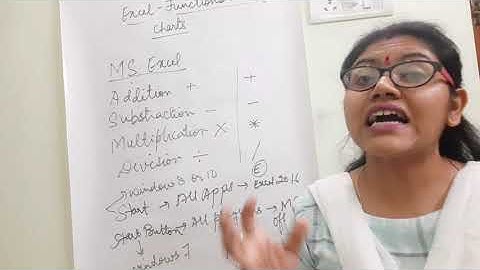 Excel - Functions
Charts
MS Excel
Addition + +
Substraction - -
Multiplication X *
Devision ÷ /
E
windows 8 or 10
Start → All Apps → Excel 2016
Start Button → All programs → M
off
↓
windows 7